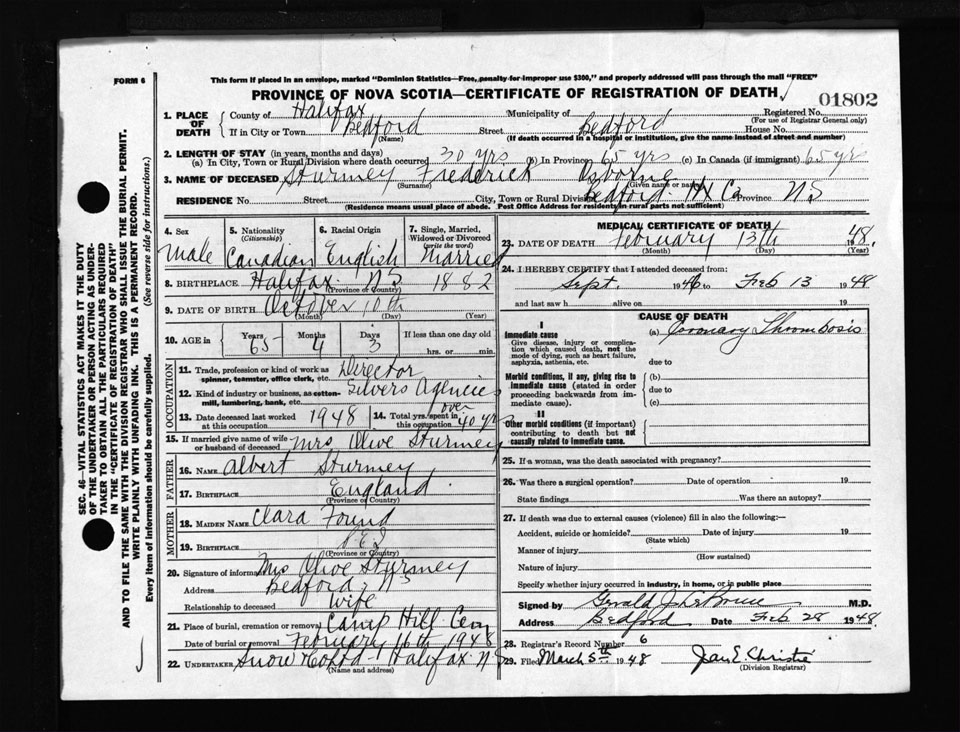 FORM 6
This form if placed in an envelope, marked "Dominion Statistics—Free, penalty for improper use $300," and properly addressed will pass through the mail "FREE"
PROVINCE OF NOVA SCOTIA—CERTIFICATE OF REGISTRATION OF DEATH
01802
1. PLACE OF DEATH
County of Halifax Municipality of Registered No.
(For use of Registrar General only)
If in City or Town Bedford Street Bedford House No.
(Name) (If death occurred in a hospital or institution, give the name instead of street and number)
2. LENGTH OF STAY (in years, months and days)
(a) In City, Town or Rural Division where death occurred 30 yrs (b) In Province 65 yrs (c) In Canada (if immigrant) 65 yrs
3. NAME OF DECEASED Sturmey Frederick Osborne
(Surname) (Given name or names)
RESIDENCE No. Street City, Town or Rural Division Bedford Hx Co Province N S
(Residence means usual place of abode. Post Office Address for residents in rural parts not sufficient)
4. Sex Male
5. Nationality (Citizenship) Canadian
6. Racial Origin English
7. Single, Married, Widowed or Divorced (write the word) Married
8. BIRTHPLACE Halifax N S
(Province or Country)
9. DATE OF BIRTH October 10th 1882
(Month) (Day) (Year)
10. AGE in Years 65 Months 4 Days 3 If less than one day old
hrs. or min.
OCCUPATION
11. Trade, profession or kind of work as spinner, teamster, office clerk, etc. Director
12. Kind of industry or business, as cotton-mill, lumbering, bank, etc. Silvers Agencies
13. Date deceased last worked at this occupation 1948
14. Total yrs. spent in this occupation over 40 yrs
15. If married give name of wife or husband of deceased Mrs Olive Sturmey
FATHER
16. NAME Albert Sturmey
17. BIRTHPLACE England
(Province or Country)
MOTHER
18. MAIDEN NAME Clara Found
19. BIRTHPLACE P E I
(Province or Country)
20. Signature of informant Mrs Olive Sturmey
Address Bedford N S
Relationship to deceased Wife
21. Place of burial, cremation or removal Camp Hill Cem
Date of burial or removal February 16th 1948
22. UNDERTAKER Snow & Co Ltd Halifax N S
(Name and address)
MEDICAL CERTIFICATE OF DEATH
23. DATE OF DEATH February 13th 1948
(Month) (Day) (Year)
24. I HEREBY CERTIFY that I attended deceased from:
Sept. 1946 to Feb 13 1948
and last saw h alive on 19
CAUSE OF DEATH
I
Immediate cause
Give disease, injury or complication which caused death, not the mode of dying, such as heart failure, asphyxia, asthenia, etc.
(a) Coronary Thrombosis
due to
Morbid conditions, if any, giving rise to immediate cause (stated in order proceeding backwards from immediate cause).
(b)
due to
(c)
II
Other morbid conditions (if important) contributing to death but not causally related to immediate cause.
25. If a woman, was the death associated with pregnancy?
26. Was there a surgical operation? Date of operation 19
State findings Was there an autopsy?
27. If death was due to external causes (violence) fill in also the following:—
Accident, suicide or homicide? Date of injury 19
(State which)
Manner of injury
(How sustained)
Nature of injury
Specify whether injury occurred in industry, in home, or in public place
Signed by Gerald J. M.D.
Address Bedford Date Feb 28 1948
28. Registrar's Record Number 6
29. Filed March 5th 1948 Jean E. Christie
(Division Registrar)
SEC. 46—VITAL STATISTICS ACT MAKES IT THE DUTY
OF THE UNDERTAKER OR PERSON ACTING AS UNDER-
TAKER TO OBTAIN ALL THE PARTICULARS REQUIRED
IN THE "CERTIFICATE OF REGISTRATION OF DEATH"
AND TO FILE THE SAME WITH THE DIVISION REGISTRAR WHO SHALL ISSUE THE BURIAL PERMIT.
WRITE PLAINLY WITH UNFADING INK. THIS IS A PERMANENT RECORD.
Every item of information should be carefully supplied. (See reverse side for instructions.)